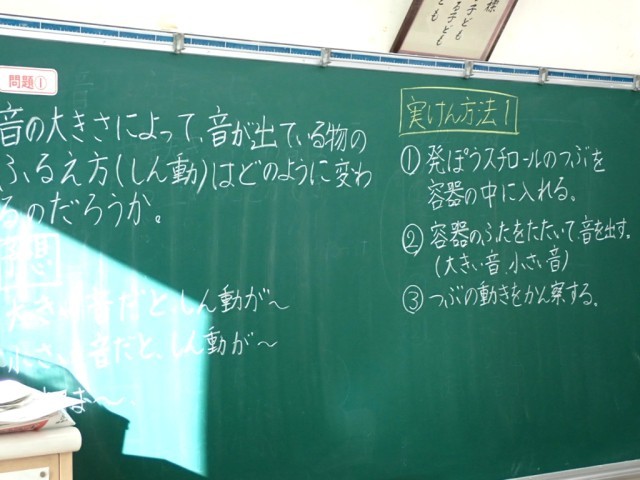 標
る子ども
子ども
ども
問題①
音の大きさによって、音が出ている物の
ふるえ方(しん動)はどのように変わ
るのだろうか。
予想
大きい音だと、しん動が〜
小さい音だと、しん動が〜
は〜
実けん方法1
①発ぽうスチロールのつぶを
容器の中に入れる。
②容器のふたをたたいて、音を出す。
(大きい音、小さい音)
③つぶの動きをかん察する。